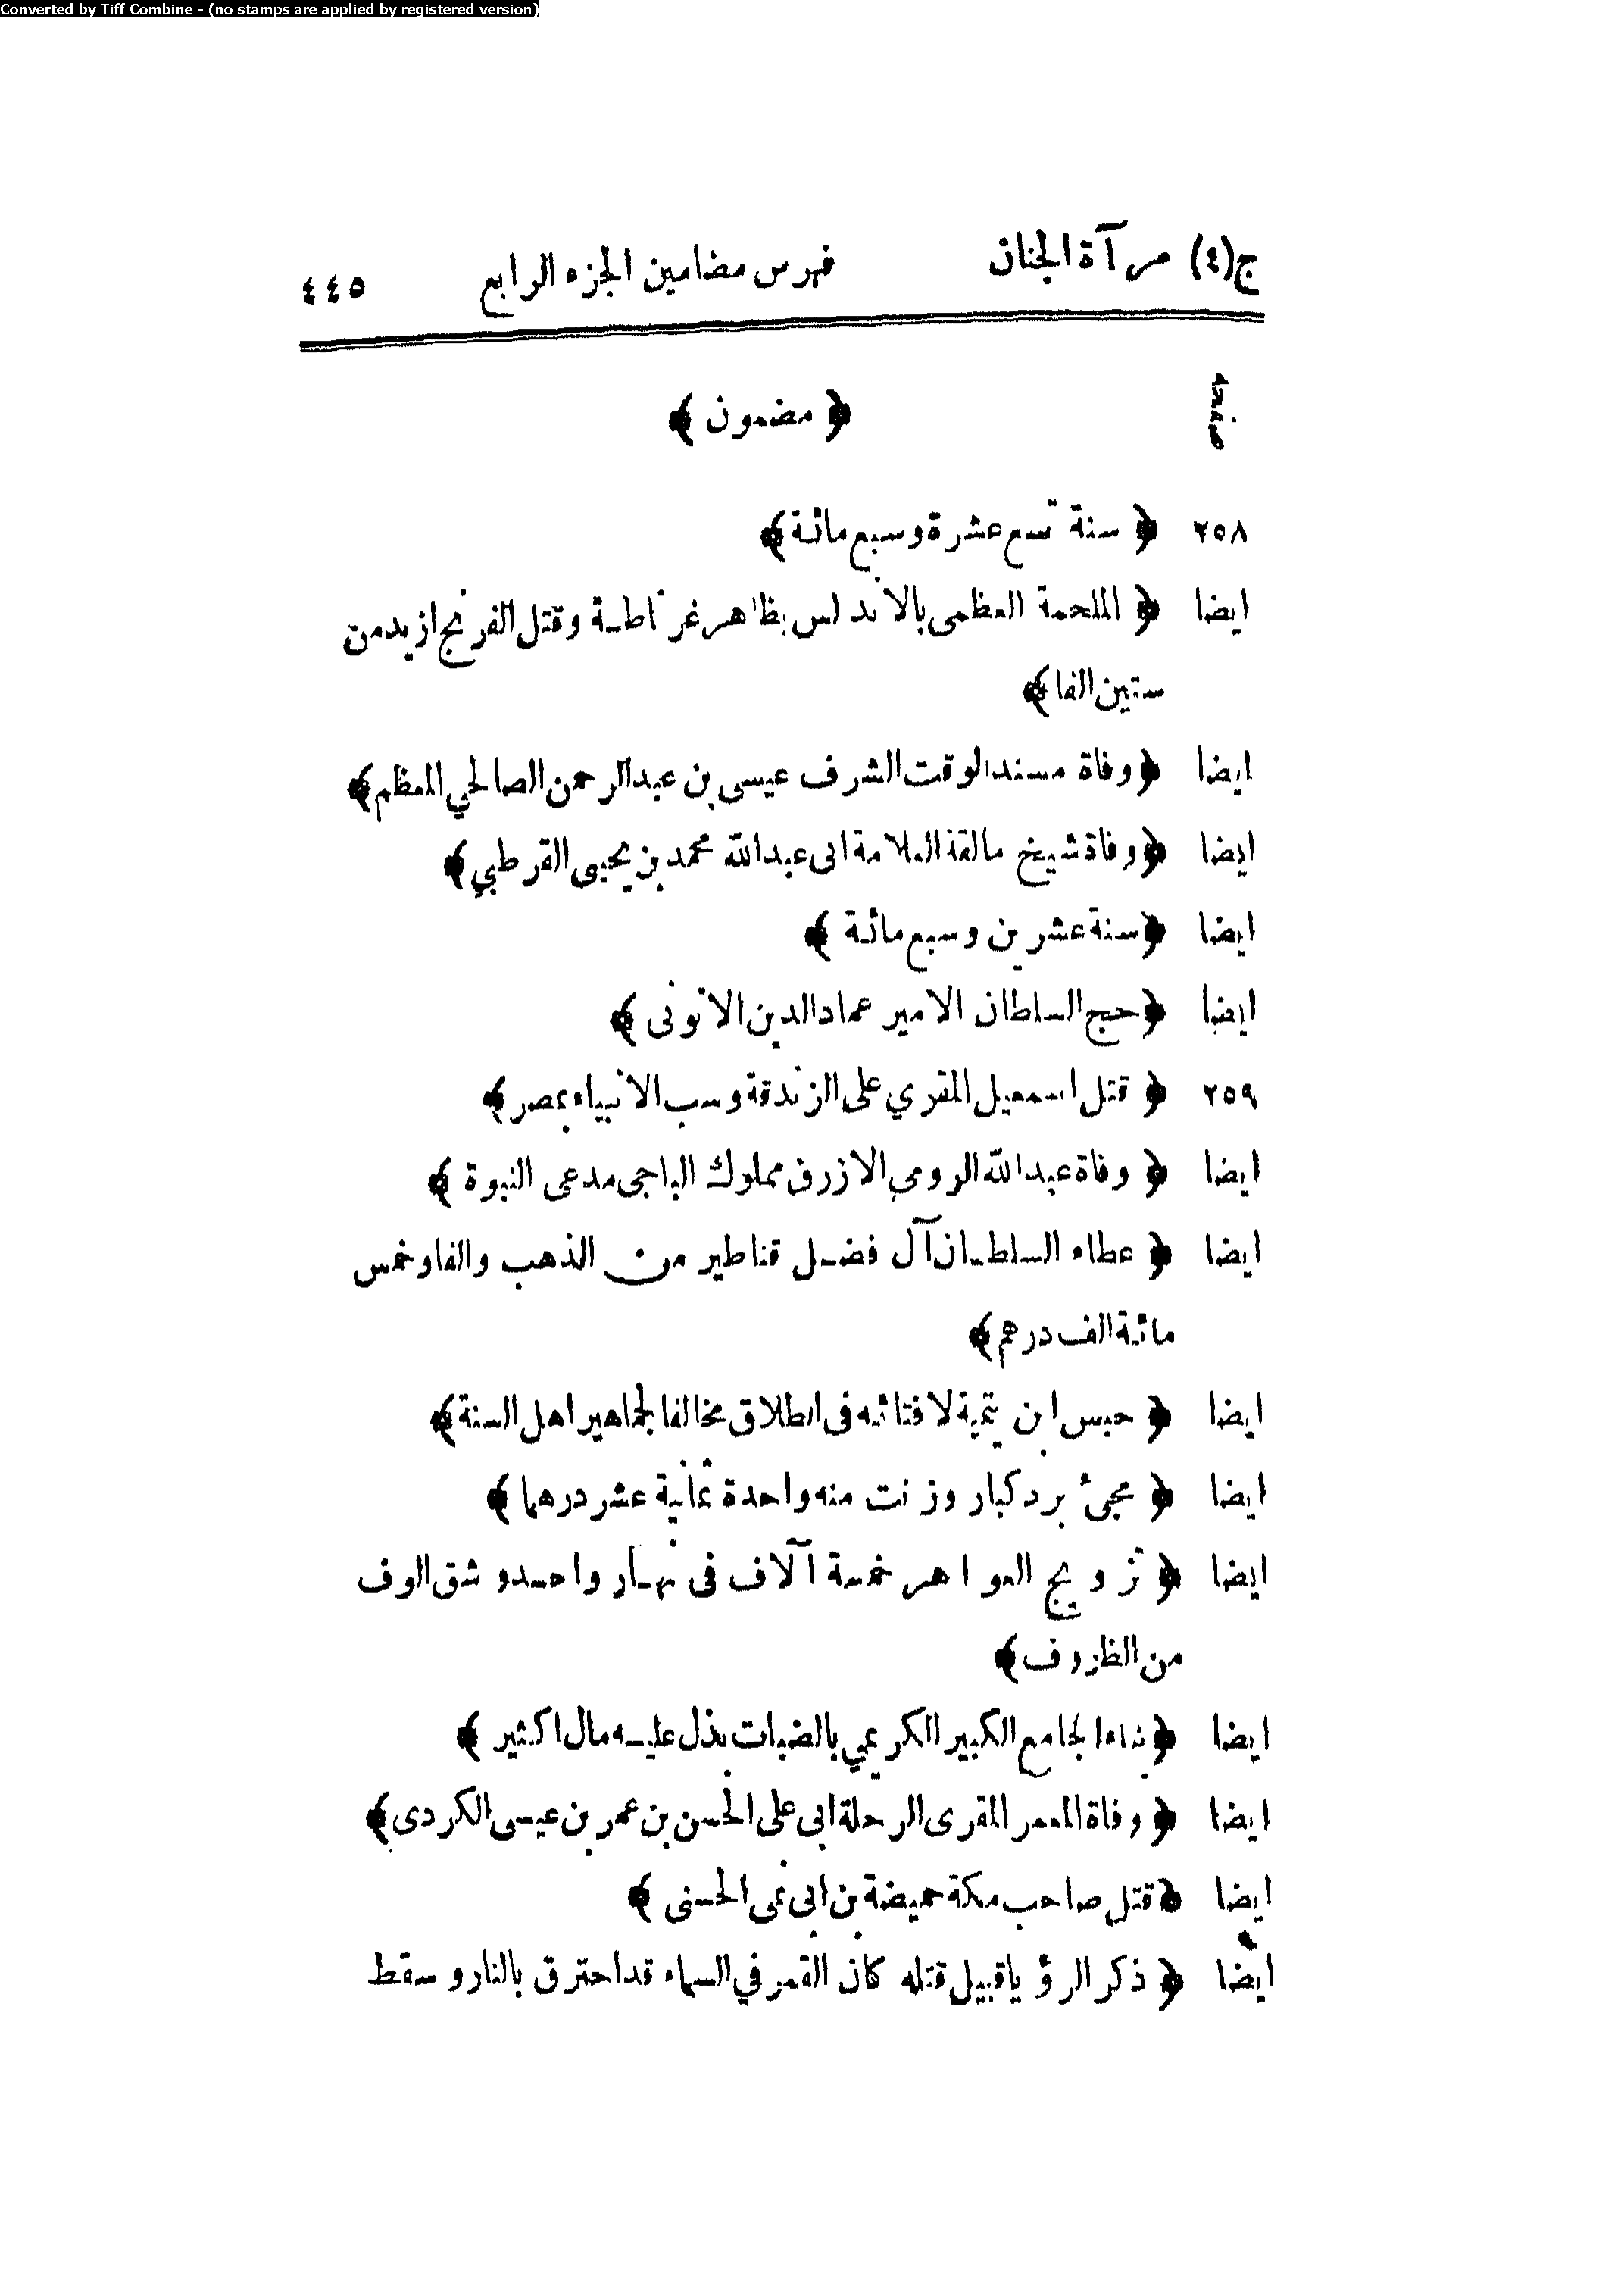 Converted by Tiff Combine - (no stamps are applied by registered version)
ج(٤) مرآة الجنان فهرس مضامين الجزء الرابع ٤٤٥
صفحه ﴿ مضمون ﴾
٢٥٨ ﴿ سنة تسع عشرة وسبع مائة ﴾
ايضا ﴿ الملحمة العظمى بالاندلس بظاهر غرناطة وقتل الفرنج ازيد من
ستين الفا ﴾
ايضا ﴿ وفاة مسند الوقت الشرف عيسى بن عبد الرحمن الصالحي المعظم ﴾
ايضا ﴿ وفاة شيخ مالقة العلامة ابى عبد الله محمد بن يحيى القرطبي ﴾
ايضا ﴿ سنة عشرين وسبع مائة ﴾
ايضا ﴿ حج السلطان الامير عماد الدين الاتونى ﴾
٢٥٩ ﴿ قتل اسمعيل المقري على الزندقة وسب الانبياء بمصر ﴾
ايضا ﴿ وفاة عبد الله الرومي الازرق مملوك الباجى مدعى النبوة ﴾
ايضا ﴿ عطاء السلطان آل فضل قناطير من الذهب والفا وخمس
مائة الف درهم ﴾
ايضا ﴿ حبس ابن تيمية لافتائه فى الطلاق مخالفا لجماهير اهل السنة ﴾
ايضا ﴿ مجئ برد كبار وزنت منه واحدة ثمانية عشر درهما ﴾
ايضا ﴿ تزويج العواهر خمسة آلاف فى نهار واحد وشق الوف
من الظروف ﴾
ايضا ﴿ بناء الجامع الكبير الكريمي بالضبات بذل عليه مال اكثير ﴾
ايضا ﴿ وفاة المعمر المقرى الرحلة ابى على الحسن بن عمر بن عيسى الكردى ﴾
ايضا ﴿ قتل صاحب مكة حميضة بن ابى نمى الحسنى ﴾
ايضا ﴿ ذكر الرؤيا قبيل قتله كان القمر في السماء قد احترق بالنار وسقط